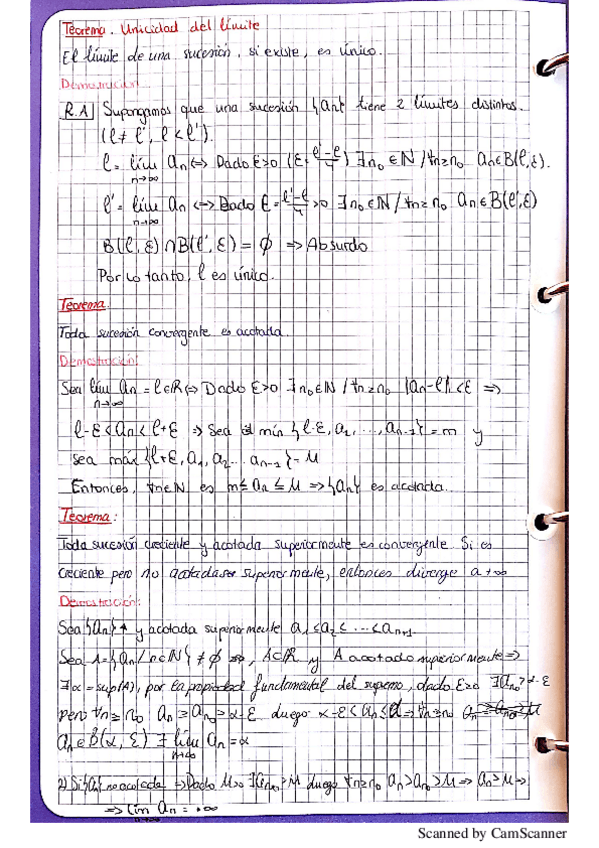 Teorema. Unicidad del límite
El límite de una sucesión, si existe, es único.
Demostración:
R.A Supongamos que una sucesión {an} tiene 2 límites distintos.
(l ≠ l', l < l').
l = lím an ⇔ Dado ε>0 (ε = (l'-l)/4) ∃ n₀ ∈ ℕ / ∀n ≥ n₀ an ∈ B(l, ε).
n→∞
l' = lím an ⇔ Dado ε = (l'-l)/4 > 0 ∃ n₀ ∈ ℕ / ∀n ≥ n₀ an ∈ B(l', ε)
n→∞
B(l, ε) ∩ B(l', ε) = ∅ ⇒ Absurdo
Por lo tanto, l es único.
Teorema.
Toda sucesión convergente es acotada.
Demostración:
Sea lím an = l ∈ ℝ ⇔ Dado ε>0 ∃ n₀ ∈ ℕ / ∀n ≥ n₀ |an - l| < ε ⇒
n→∞
l-ε < an < l+ε ⇒ Sea mín {l-ε, a₂, ..., an-1} = m y
sea máx {l+ε, a₁, a₂... an-1} = M
Entonces, ∀n∈ℕ es m ≤ an ≤ M ⇒ {an} es acotada.
Teorema:
Toda sucesión creciente y acotada superiormente es convergente. Si es
creciente pero no acotada superiormente, entonces diverge a +∞
Demostración:
Sea {an} ↑ y acotada superiormente a₁ < a₂ < ... < an+1.
Sea A = {an / n∈ℕ} ≠ ∅, A⊂ℝ y A acotado superiormente ⇒
∃ α = sup(A), por la propiedad fundamental del supremo, dado ε>0 ∃ an₀ > α-ε
pero ∀n ≥ n₀ an ≥ an₀ > α-ε luego α-ε < an ≤ α ⇒ ∀n ≥ n₀
an ∈ B(α, ε) ∃ lím an = α
n→∞
2) Si {an} no acotada ⇒ Dado M>0 ∃ an₀ > M luego ∀n ≥ n₀ an > an₀ > M ⇒ an ≥ M ⇒
⇒ lím an = +∞
n→∞
Scanned by CamScanner